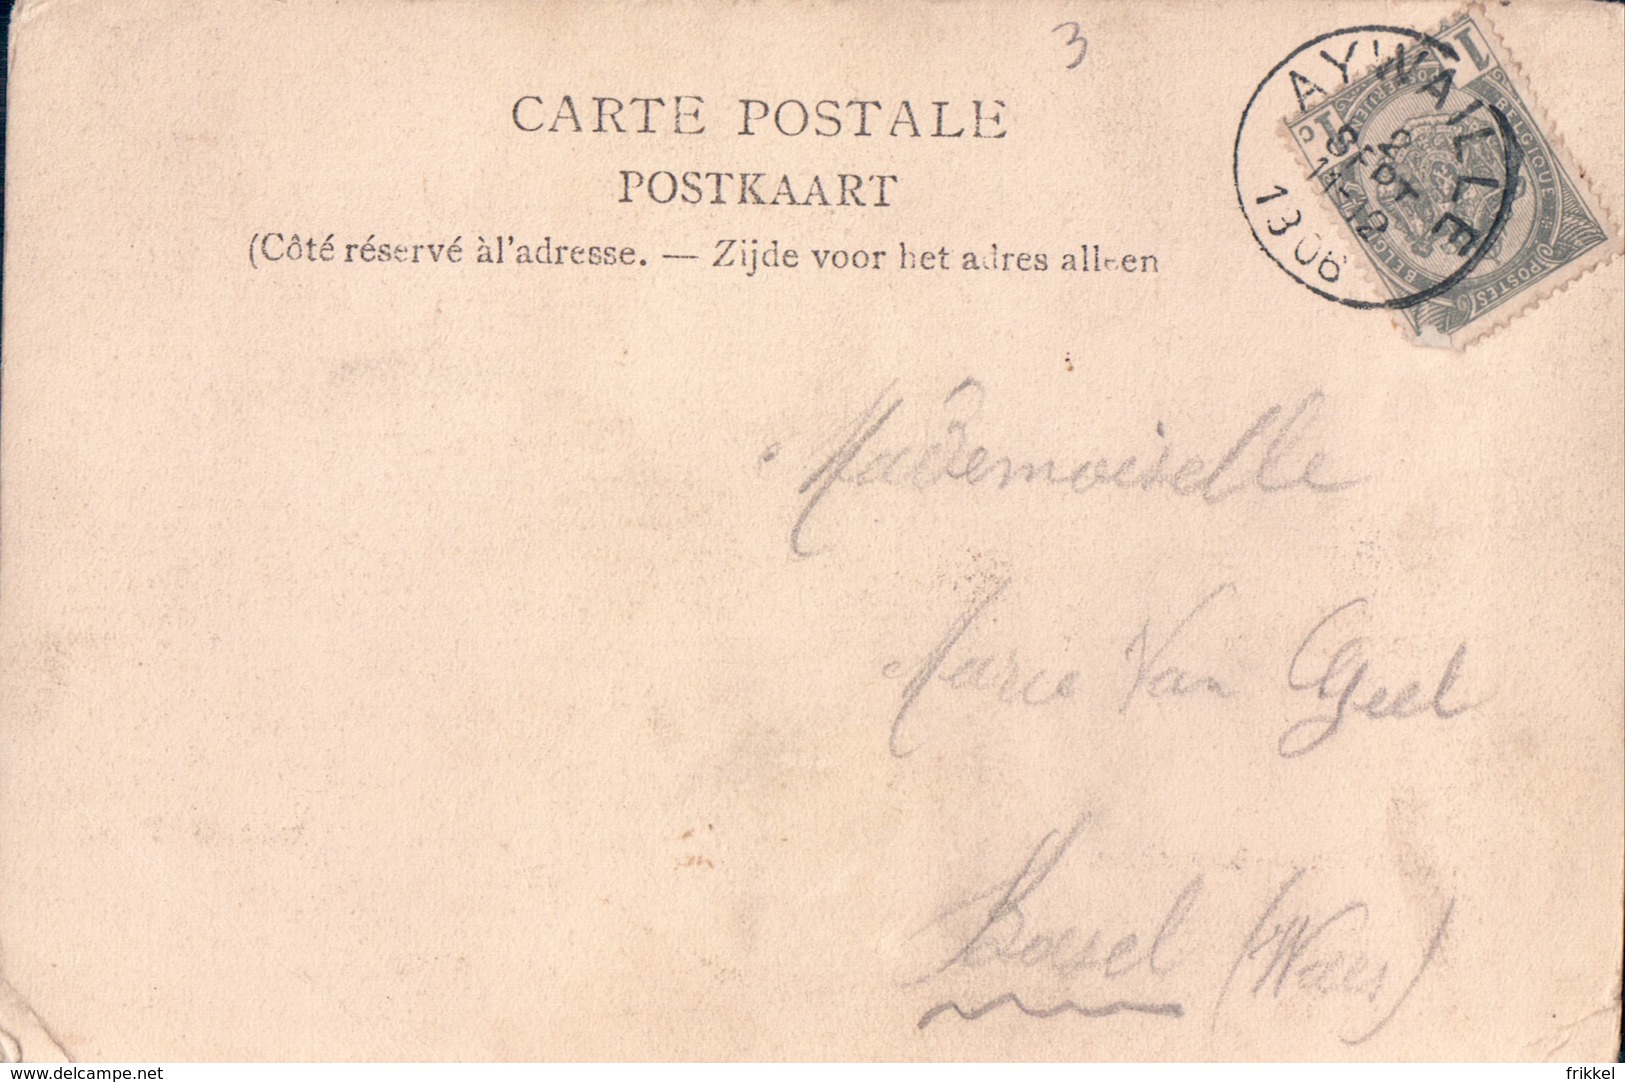 3
CARTE POSTALE
POSTKAART
(Côté réservé àl'adresse. — Zijde voor het adres alleen
AYWAILLE
2
SEPT
11-12
1306
1
1
BELGIQUE
POSTES
Mademoiselle
Marie Van Geel
(Waes)
delcampe.net
frikkel